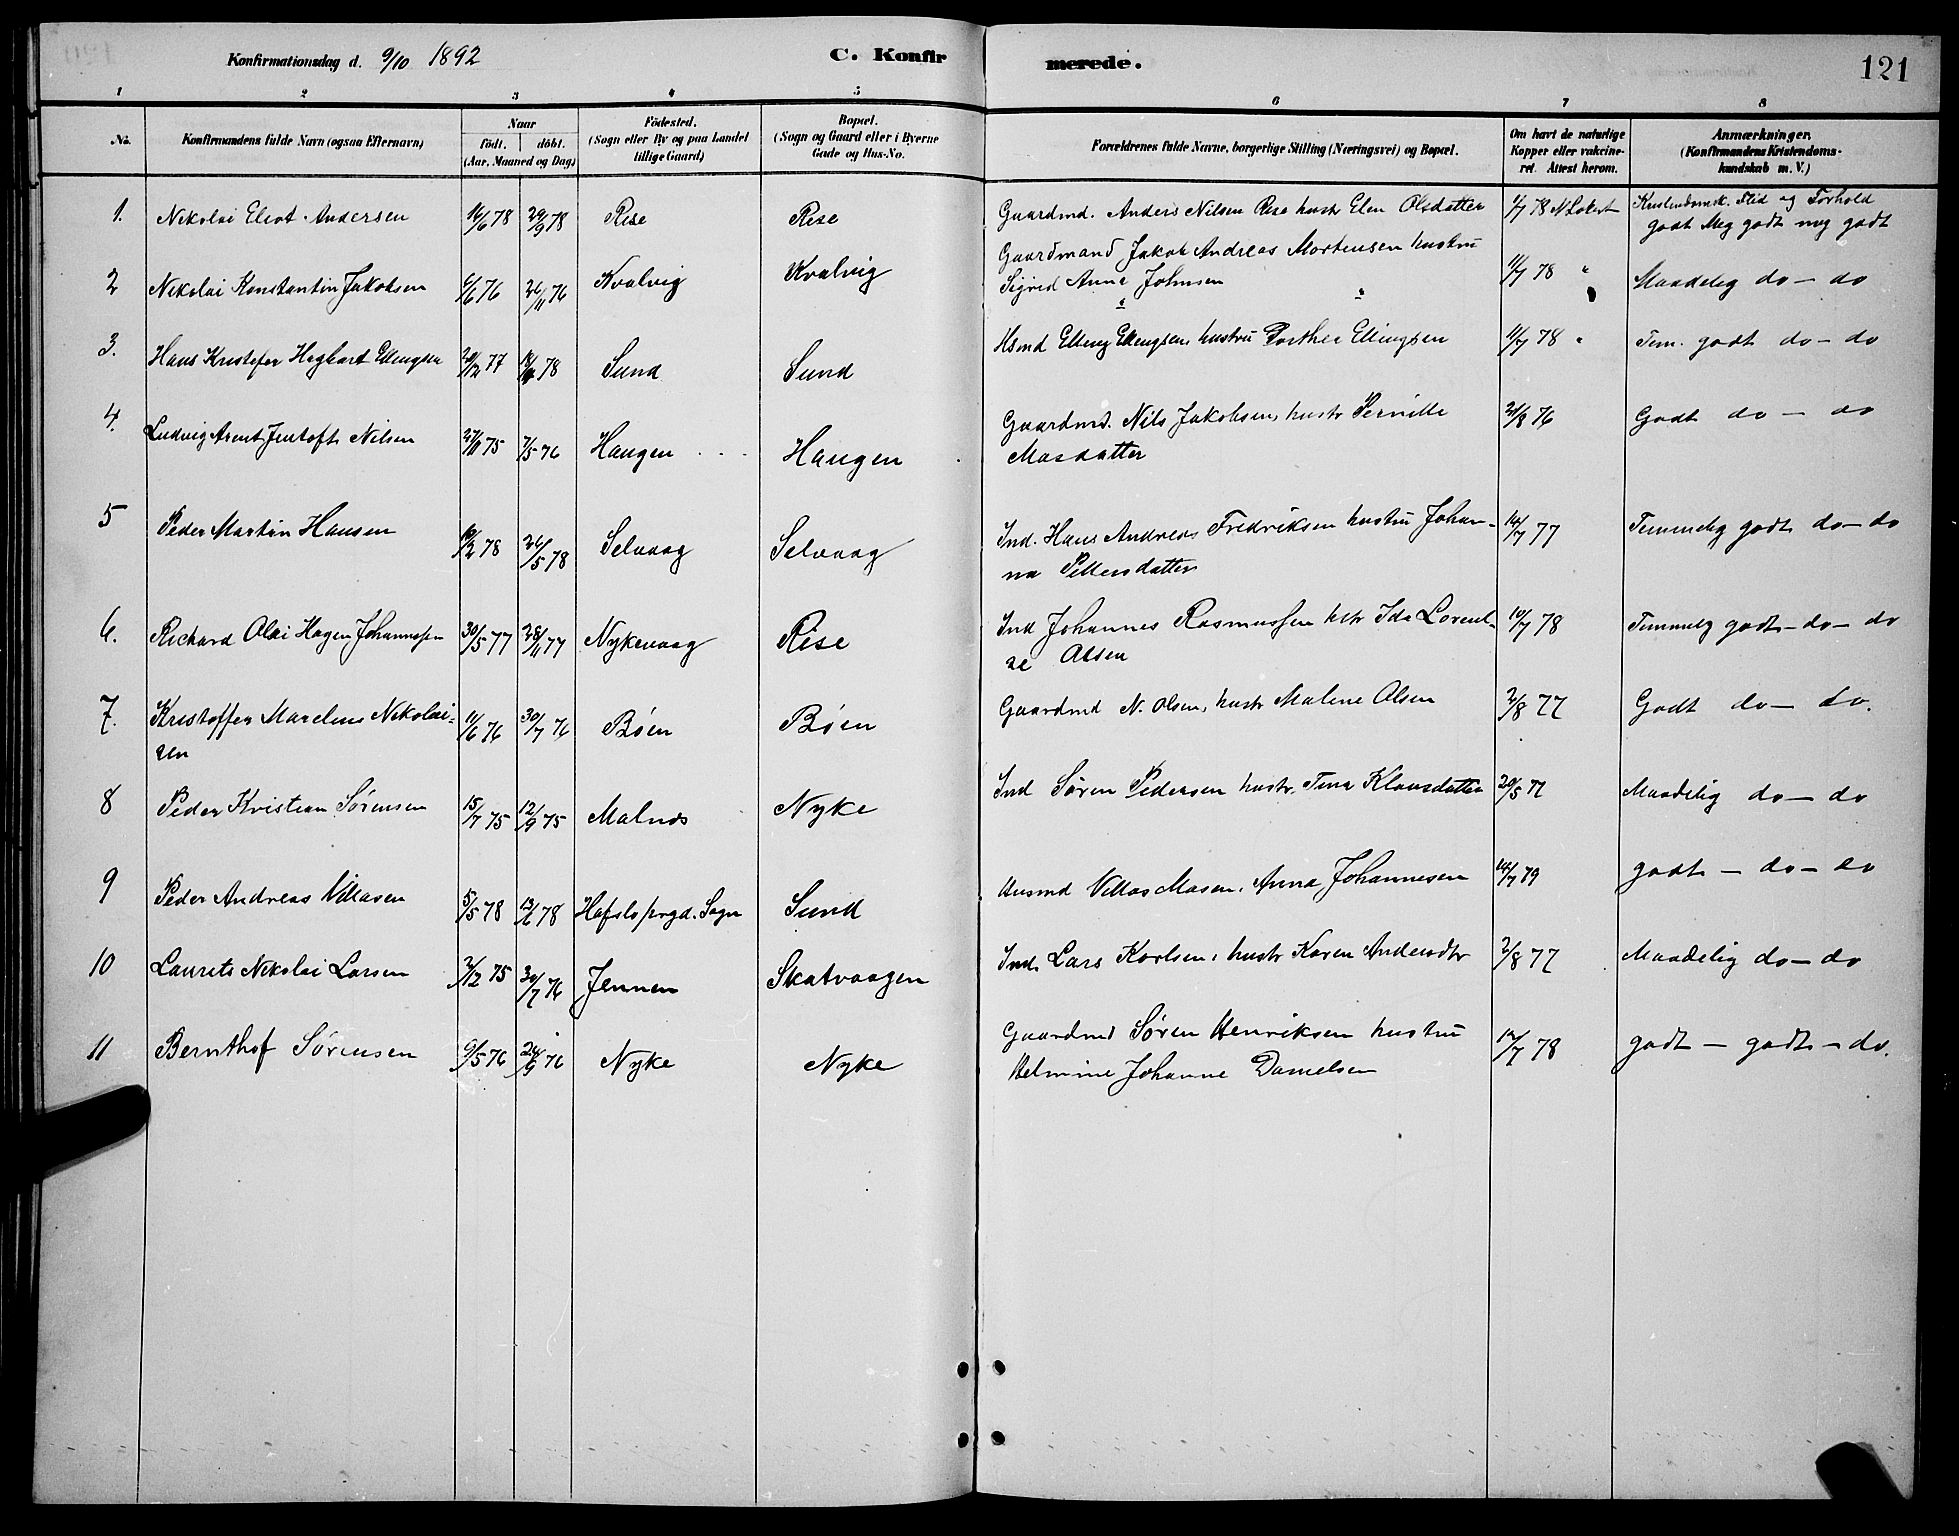 Konfirmationsdag d. 9/10 1892 C. Konfirmerede. 121
1 2 3 4 5 6 7 8
No. Konfirmandens fulde Navn (ogsaa Efternavn) Naar födt. döbt. (Aar, Maaned og Dag) Födested. (Sogn eller By og paa Landet tillige Gaard) Bopæl. (Sogn og Gaard eller i Byerne Gade og Hus-No. Forældrenes fulde Navne, borgerlige Stilling (Næringsvei) og Bopæl. Om havt de naturlige Kopper eller vakcineret. Attest herom. Anmærkninger. (Konfirmandens Kristendomskundskab m. V.)
1. Nikolai Eliot Andersen 16/6 78 29/9 78 Rise Rise Gaardmd. Anders Nilsen Rise hustr Elen Olsdatter 1/7 78 Kristendomsk. Flid og Forhold
godt Meg godt meg godt
2 Nikolai Konstantin Jakobsen 6/6 76 26/11 76 Kvalvig Kvalvig Gaardmand Jakob Andreas Mortensen hustru
Sigrid Anna Johnsen 11/7 78 " Maadelig do - do
3. Hans Kristofer Hagbart Ellingsen 20/12 77 78 Sund Sund Hsmd Elling Ellingsen, hustru Dorthea Ellingsen 11/7 78 " Tem. godt do - do
4. Ludvig Arent Jentoft Nilsen 27/11 75 7/5 76 Haugen Haugen Gaardmd. Nils Jakobsen, hustr Pernille
Masdatter 21/8 76 Godt do - do
5 Peder Martin Hansen 78 26/5 78 Selvaag Selvaag Ind. Hans Andreas Fredriksen hustru Johan-
na Pettersdatter 14/7 77 Temmelig godt do - do
6. Richard Olai Hagen Johannessen 30/5 77 28/11 77 Nykevaag Rise Ind Johannes Rasmussen hstr Ida Lorent-
ze Olsen 10/7 78 Temmelig godt - do - do
7. Kristoffer Marelius Nikolai-
sen 11/6 76 30/7 76 Bøen Bøen Gaardmd N. Olsen, hustr Malene Olsen 2/8 77 Godt do - do.
8 Peder Kristian Sørensen 15/7 75 12/9 75 Malnes Nyke Ind Søren Pedersen hustr. Tina Klausdatter 20/5 77 Maadelig do - do
9 Peder Andreas Villasen 5/5 78 78 Hafslo prgd. Sogn Sund Husmd Villas Masen, Anna Johannesen 14/7 79 godt - do - do
10 Laurits Nikolai Larsen 2/12 75 30/7 76 Jennen Skatvaagen Ind. Lars Karlsen, hustr Karen Andersdtr 2/8 77 Maadelig do - do
11 Bernthof Sørensen 9/5 76 24/9 76 Nyke Nyke Gaardmd Søren Henriksen hustru
Helmine Johanne Danielsen 12/7 78 godt - godt - do.